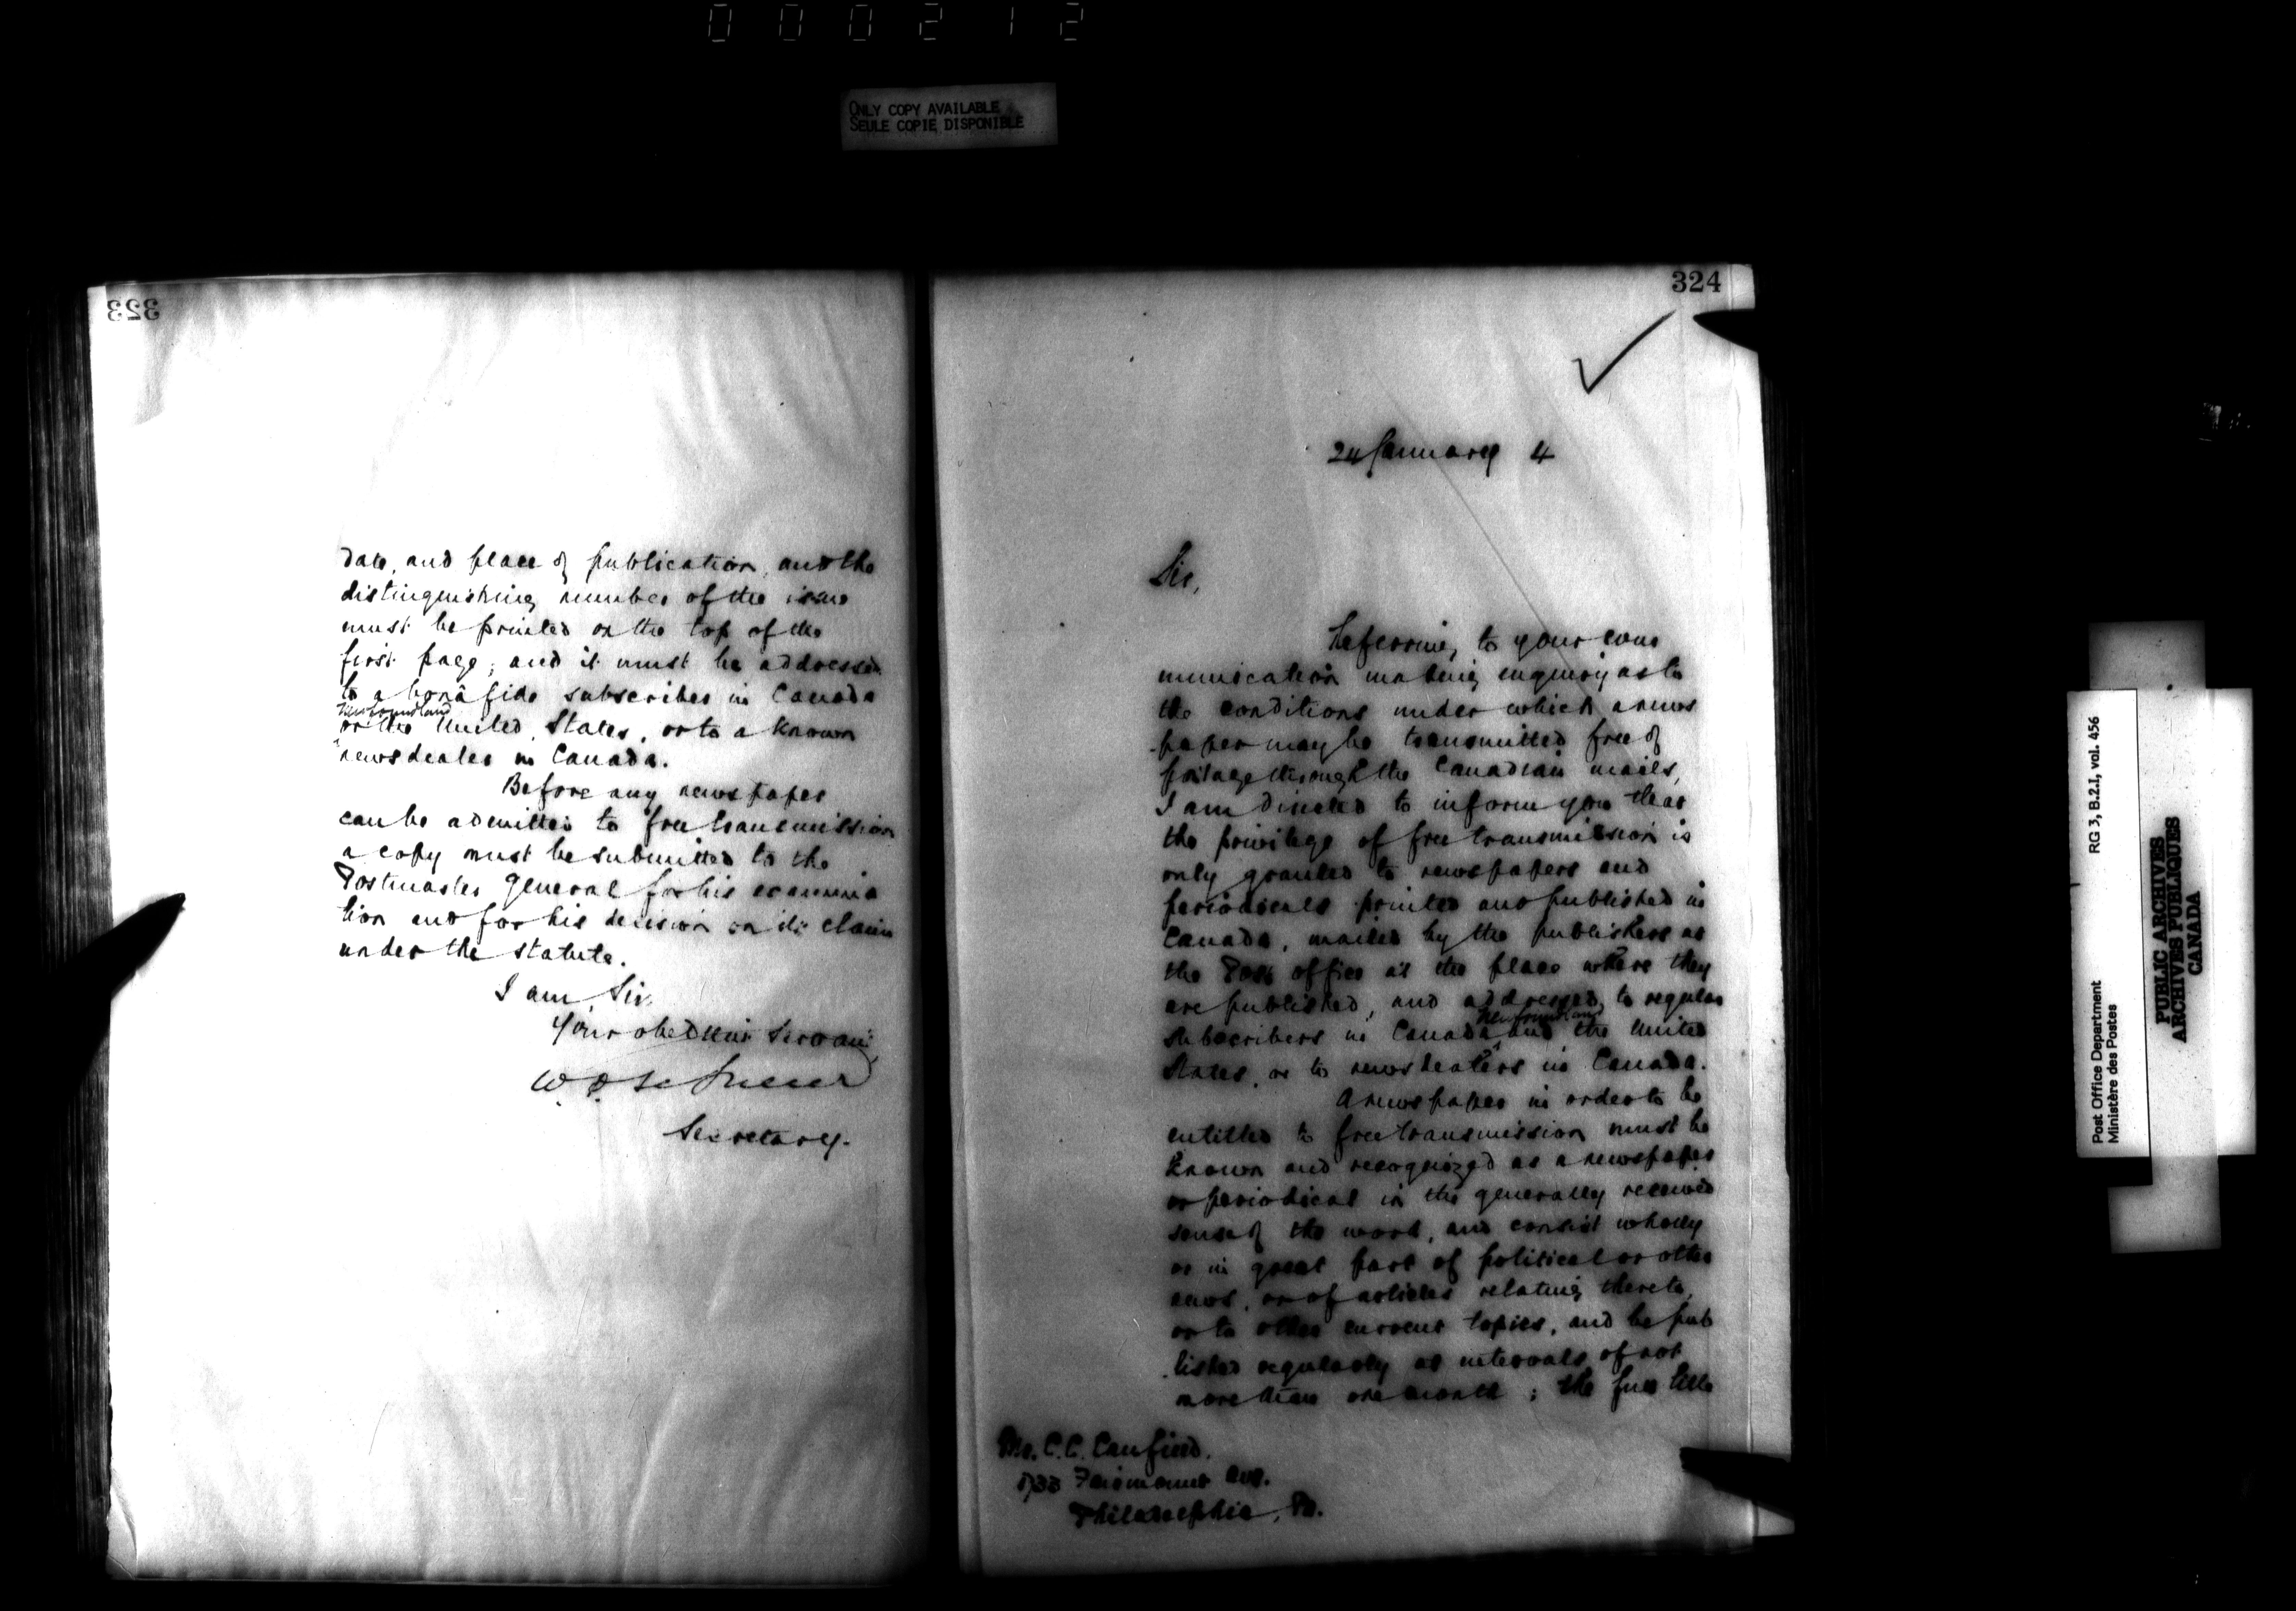 000212
ONLY COPY AVAILABLE
SEULE COPIE DISPONIBLE
323
date, and place of publication, and the
distinguishing number of the issue
must be printed on the top of the
first page; and it must be addressed
to a bonâ fide subscriber in Canada
Newfoundland
or the United States, or to a known
newsdealer in Canada.
Before any newspaper
can be admitted to free transmission
a copy must be submitted to the
Postmaster General for his examina
tion and for his decision on its claim
under the statute.
I am, Sir,
Your obedient Servant,
Secretary.
324
24 January 4
Sir,
Referring to your com
munication making enquiry as to
the conditions under which a news
-paper may be transmitted free of
postage through the Canadian mails,
I am directed to inform you that
the privilege of free transmission is
only granted to newspapers and
periodicals printed and published in
Canada, mailed by the publishers at
the Post office at the place where they
are published, and addressed to regular
Newfoundland
subscribers in Canada and the United
States, or to newsdealers in Canada.
A newspaper in order to be
entitled to free transmission must be
known and recognized as a newspaper
or periodical in the generally received
sense of the word, and consist wholly
or in great part of political or other
news, or of articles relating thereto,
or to other current topics, and be pub
lished regularly at intervals of not
more than one month; the full title
Mr. C. C. Canfield.
Fairmount Ave.
Philadelphia, Pa.
Post Office Department RG 3, B.2.1, vol. 456
Ministère des Postes
PUBLIC ARCHIVES
ARCHIVES PUBLIQUES
CANADA